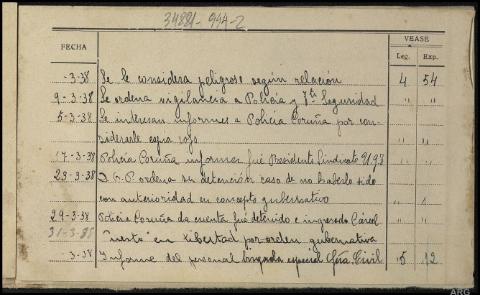 34881-944-2
FECHA
VEASE
Leg. Exp.
-3-38 Se le considera peligroso según relación 4 54
9-3-38 Se ordena vigilancia a Policía y Seguridad " "
5-3-38 Se interesan informes a Policía Coruña por con-
siderarle espia rojo " "
17-3-38 Policía Coruña informa fué Presidente Sindicato " "
23-3-38 ordena su detención caso de no haberlo sido
con anterioridad en concepto gubernativo " "
29-3-38 Policía Coruña da cuenta fué detenido e ingresado Cárcel
31-3-38 en Libertad por orden gubernativa " "
3-38 Informe del personal brigada especial Gña. Civil 5 12
ARG